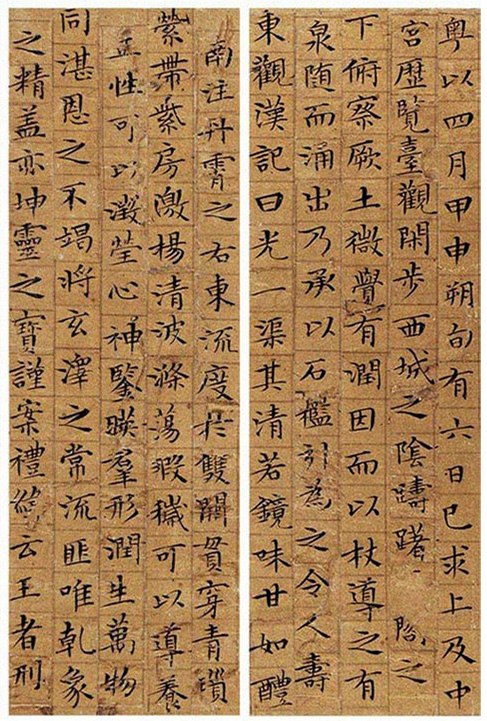 粤以四月甲申朔旬有六日巳求上及中
宮歷覽臺觀閑步西城之陰躊躇 閣之
下俯察厥土微覺有潤因而以杖導之有
泉随而涌出乃承以石檻引為之令人壽
東觀漢記曰光一渠其清若鏡味甘如醴
南注丹霄之右東流度於雙闕貫穿青瑣
縈帶紫房激楊清波滌蕩瑕穢可以導養
正性可以澂瑩心神鑒暎羣形潤生萬物
同湛恩之不竭將玄澤之常流匪唯乾象
之精盖亦坤靈之寶謹案禮緯云王者刑